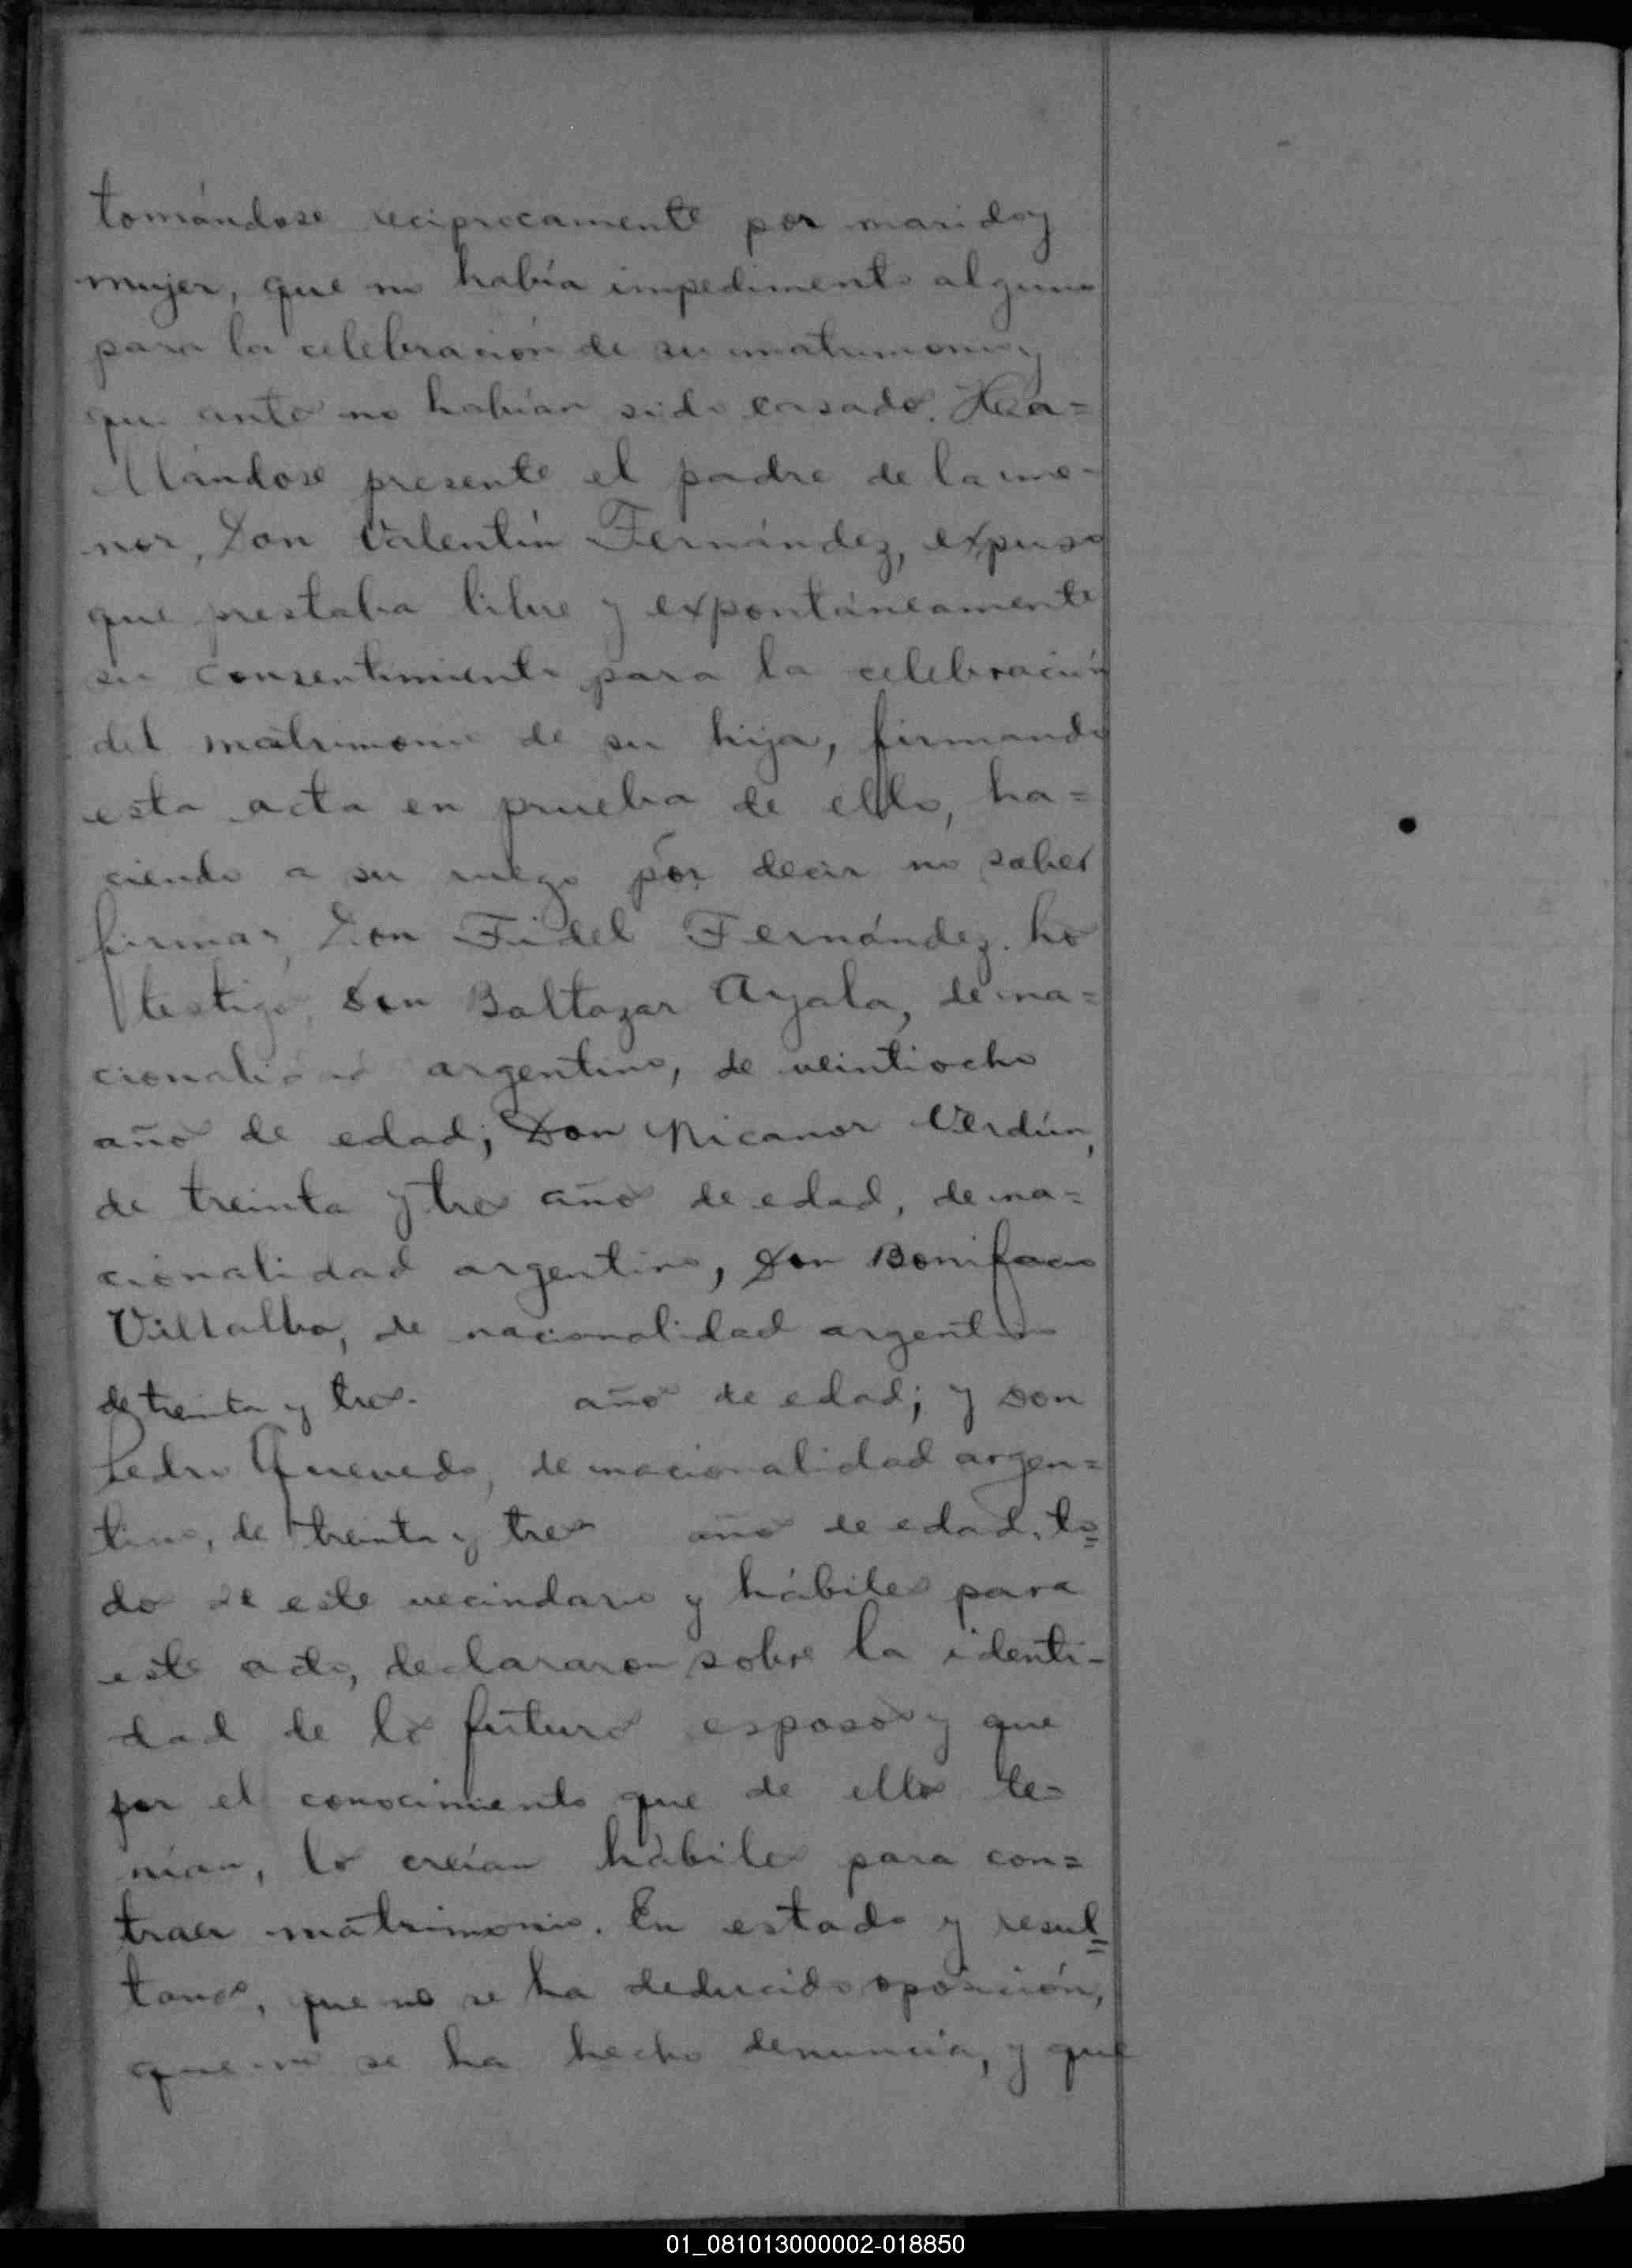 tomándose reciprocamente por marido y
mujer, que no había impedimento alguno
para la celebración de su matrimonio y
que antes no habían sido casados. Ha=
llándose presente el padre de la me-
nor, Don Valentín Fernández, expuso
que prestaba libre y expontáneamente
su consentimiento para la celebración
del matrimonio de su hija, firmando
esta acta en prueba de ello, ha=
ciendo a su ruego por decir no saber
firmar, Don Fidel Fernández. Los
testigos, Don Baltazar Ayala, de na=
cionalidad argentino, de veintiocho
años de edad; Don Nicanor Verdún,
de treinta y tres años de edad, de na=
cionalidad argentino, Don Bonifacio
Villalba, de nacionalidad argentino
de treinta y tres. años de edad; y Don
Pedro Quevedo, de nacionalidad argen=
tino, de treinta y tres años de edad, to=
dos de este vecindario y hábiles para
este acto, declararon sobre la identi-
dad de los futuros esposos y que
por el conocimiento que de ellos te=
nían, los creían hábiles para con=
traer matrimonio. En estado y resul=
tando, que no se ha deducido oposición,
que no se ha hecho denuncia, y que
01_081013000002-018850